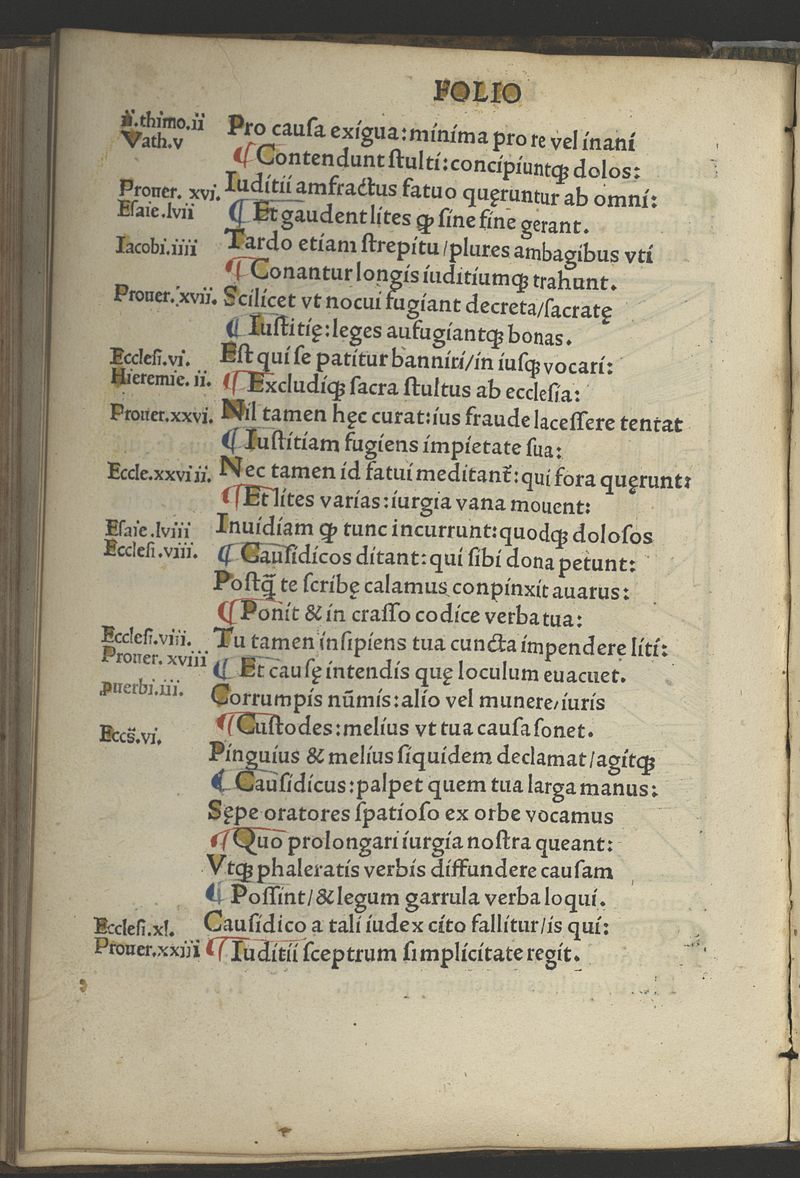 FOLIO
ii.thimo.ii Pro cauſa exigua:minima pro re vel inani
Vath.v ¶ Contendunt ſtulti:concipiuntꝗ dolos:
Prouer. xvi. Iuditii amfractus fatuo quęruntur ab omni:
Eſaie.lvii ¶ Et gaudent lites ꝙ ſine fine gerant.
Iacobi.iiii Tardo etiam ſtrepitu/plures ambagibus vti
¶ Conantur longis iuditiumꝗ trahunt.
Prouer.xvii. Scilicet vt nocui fugiant decreta/ſacratę
¶ Iuſtitię:leges aufugiantꝗ bonas.
Eccleſi.vi. Eſt qui ſe patitur banniri/in iuſꝗ vocari:
Hieremie. ii. ¶ Excludiꝗ ſacra ſtultus ab eccleſia:
Prouer.xxvi. Nil tamen hęc curat:ius fraude laceſſere tentat
¶ Iuſtitiam fugiens impietate ſua:
Eccle.xxviii. Nec tamen id fatui meditant᷑:qui fora quęrunt:
¶ Et lites varias:iurgia vana mouent:
Eſaie.lviii Inuidiam ꝙ tunc incurrunt:quodꝗ doloſos
Eccleſi.viii. ¶ Cauſidicos ditant:qui ſibi dona petunt:
Poſtq̃ te ſcribę calamus conpinxit auarus:
¶ Ponit & in craſſo codice verba tua:
Eccleſi.viii. Tu tamen inſipiens tua cuncta impendere liti:
Prouer. xviii ¶ Et cauſę intendis quę loculum euacuet.
ꝓuerbi.iii. Corrumpis nūmis:alio vel munere/iuris
¶ Cuſtodes:melius vt tua cauſa ſonet.
Eccs̄.vi. Pinguius & melius ſiquidem declamat/agitꝗ
¶ Cauſidicus:palpet quem tua larga manus:
Sępe oratores ſpatioſo ex orbe vocamus
¶ Quo prolongari iurgia noſtra queant:
Vtꝗ phaleratis verbis diffundere cauſam
¶ Poſſint/& legum garrula verba loqui.
Eccleſi.xl. Cauſidico a tali iudex cito fallitur/is qui:
Prouer.xxiii ¶ Iuditii ſceptrum ſimplicitate regit.